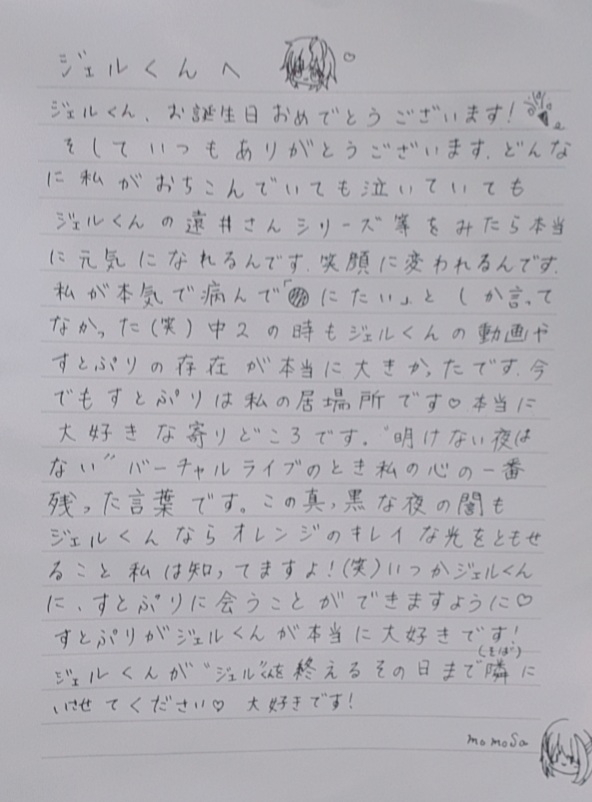 ジェルくんへ
ジェルくん、お誕生日おめでとうございます!
そしていつもありがとうございます。どんな
に私がおちこんでいても泣いていても
ジェルくんの遠井さんシリーズ等をみたら本当
に元気になれるんです。笑顔に変われるんです。
私が本気で病んで「にたい」としか言って
なかった(笑)中2の時もジェルくんの動画や
すとぷりの存在が本当に大きかったです。今
でもすとぷりは私の居場所です♡本当に
大好きな寄りどころです。"明けない夜は
ない"バーチャルライブのとき私の心の一番
残った言葉です。この真っ黒な夜の闇も
ジェルくんならオレンジのキレイな光をともせ
ること私は知ってますよ!(笑)いつかジェルくん
に、すとぷりに会うことができますように♡
すとぷりがジェルくんが本当に大好きです!
ジェルくんが"ジェル"くんを終えるその日まで隣(そば)に
いさせてください♡ 大好きです!
momosa